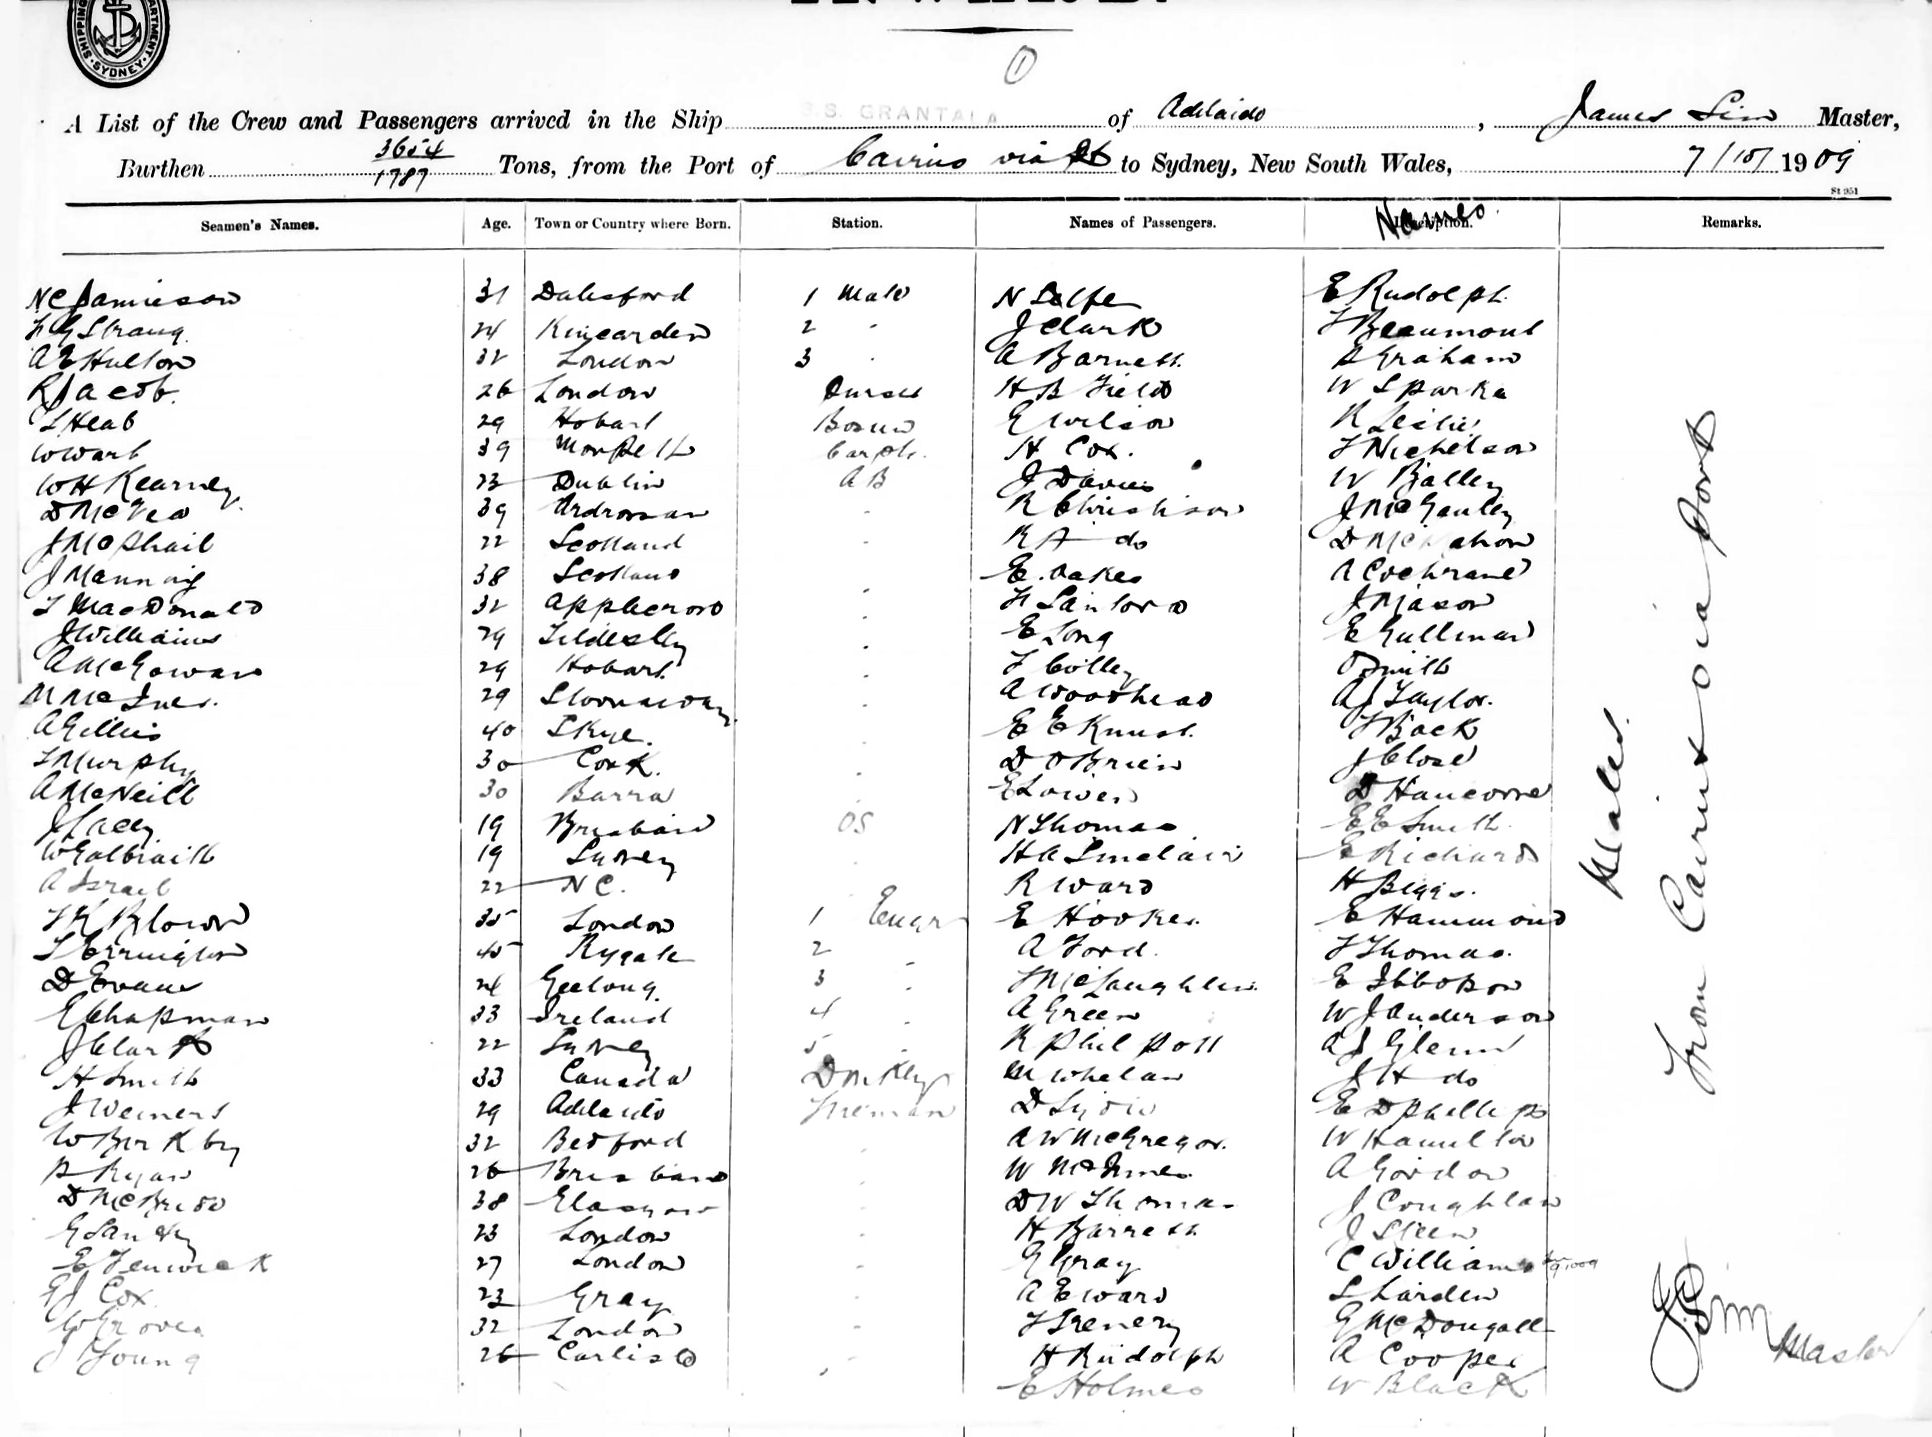 SHIPPING DEPARTMENT SYDNEY
1
A List of the Crew and Passengers arrived in the Ship S.S. GRANTALA of Adelaide, James Sim Master,
Burthen 3654/1787 Tons, from the Port of Cairns via Pts to Sydney, New South Wales, 7/10/1909
St 951
Seamen's Names. Age. Town or Country where Born. Station. Names of Passengers. Description. Names. Remarks.
N C Jamieson 31 Dalesford 1 Mate N Rolfe E Rudolph
F G Strang 24 Kincarden 2 " J Clark F Beaumont
A E Hulton 32 London 3 " A Barnett P Graham
R Jacob 26 London Purser H B Field W Sparke
39 Morpeth Carptr H Cox. T Nicholson
W H Kearney 23 Dublin A B J Davies W Balley
39 Ardrossan " R Christison J McGauley
J McPhail 22 Scotland " R A do D McMahon
J Manning 38 Scotland " E Oakes A Cochrane
T MacDonald 32 Applecross " J Mason
J Williams 29 Tildesley " E Long E Gullman
A McGowan 29 Hobart " T Colley O Smith
M McInes. 29 Stornaway " A Woodhead A J Taylor.
A Gillies 40 Skye. " E E Knust. F Back
T Murphy 30 Cork. " D O'Brien J Close
A McNeill 30 Barra " D Hancorne
J Lacey 19 Brisbane OS N Thomas E E Smith
W Galbraith 19 Sydney " H A Sinclair E Richards
A Israel 22 N C. " R Ward H Biggs.
T H Blown 35 London 1 Engr E Hooker E Hammond
T Errington 45 Rygate 2 " A Ford. T Thomas.
D Evans 24 Geelong 3 " T McLaughlin. E Ibbotson
E Chapman 33 Ireland 4 " A Green W J Anderson
J Clark 22 Sydney 5 " R Philpott A J Glenn
H Smith 33 Canada Donkey M Whelan J H do
J Weiners 29 Adelaide Fireman E D Phillips
W Birkby 32 Bedford " A W McGregor. W Hamilton
P Ryan 26 Brisbane " W McInnes A Gordon
D McBride 38 Glasgow " D W Thomas J Coughlan
G Sandy 23 London " H Barrett J Steen
E Fenwick 27 London " G Gray C Williams
G J Cox 23 Gray " A E Ward S Larden
W Groves 32 London " T Trenery G McDougall
J Young 26 Carlisle " H Rudolph A Cooper
E Holmes W Black
Males.
From Cairns via ports
J Sim Master